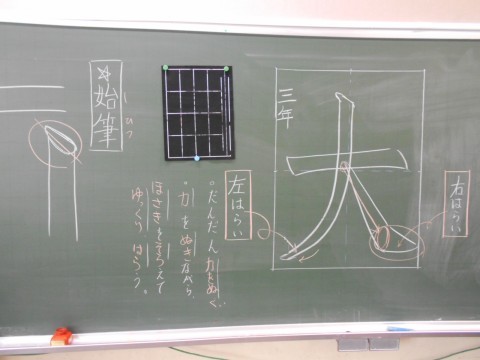 三年
大
右はらい
左はらい
。だんだん力をぬく。
。力をぬきながら、
ほさきをそろえて
ゆっくりはらう。
☆始筆
しひつ